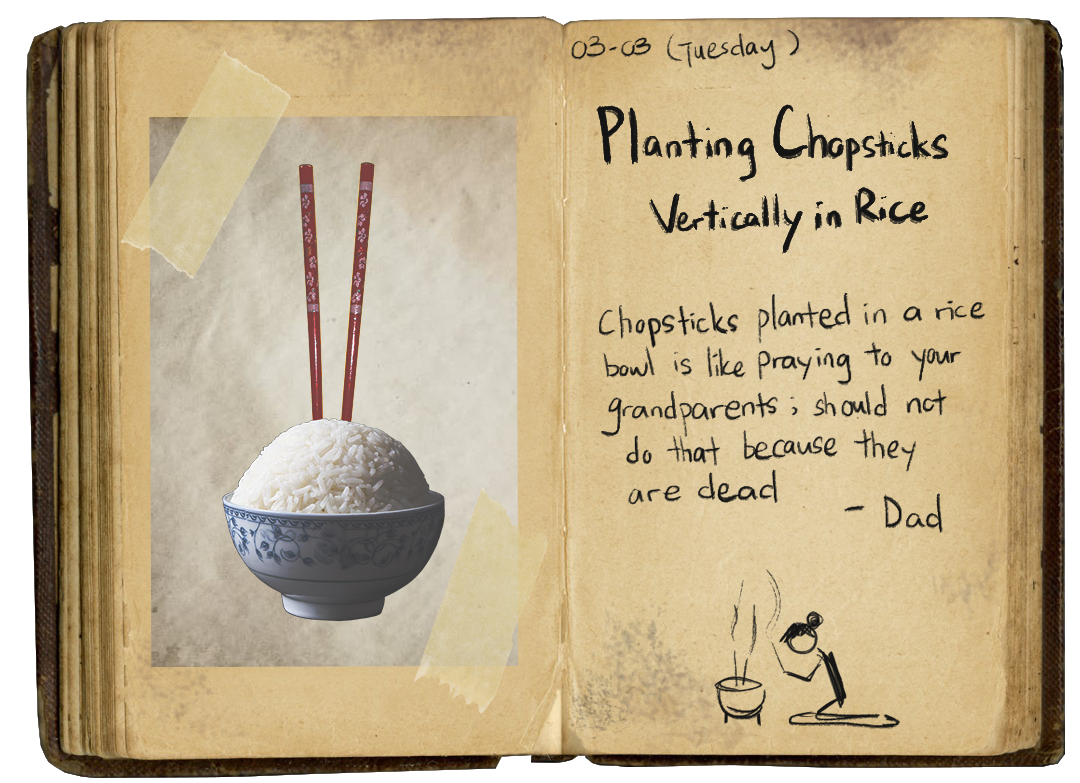 03-03 (Tuesday)
Planting Chopsticks
Vertically in Rice
Chopsticks planted in a rice
bowl is like praying to your
grandparents; should not
do that because they
are dead
- Dad